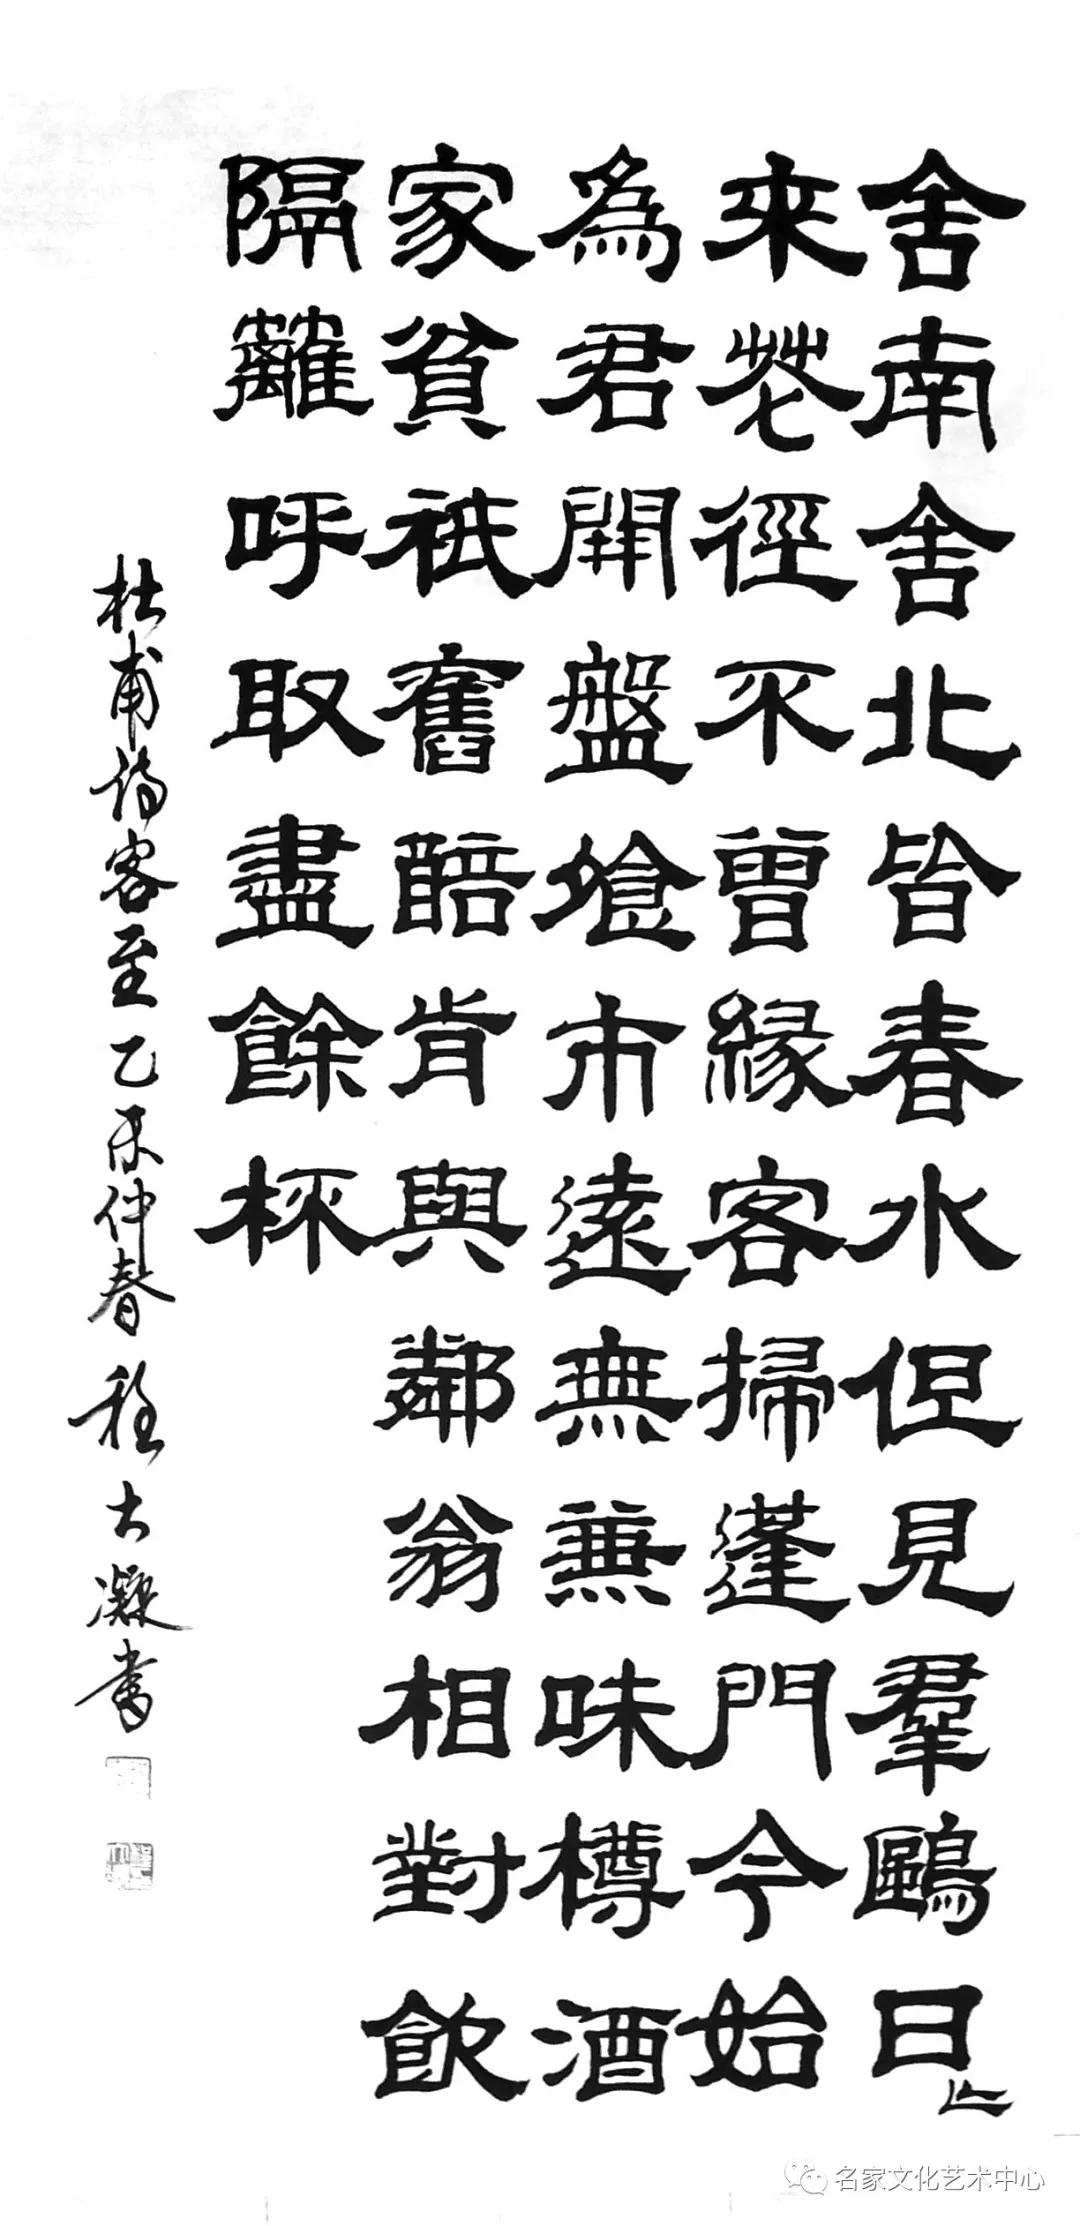 舍南舍北皆春水但見羣鷗日〻
来花徑不曾緣客掃蓬門今始
為君開盤飧市遠無兼味樽酒
家貧祇舊醅肯與鄰翁相對飲
隔籬呼取盡餘杯
杜甫诗客至乙未仲春程大凝书
名家文化艺术中心